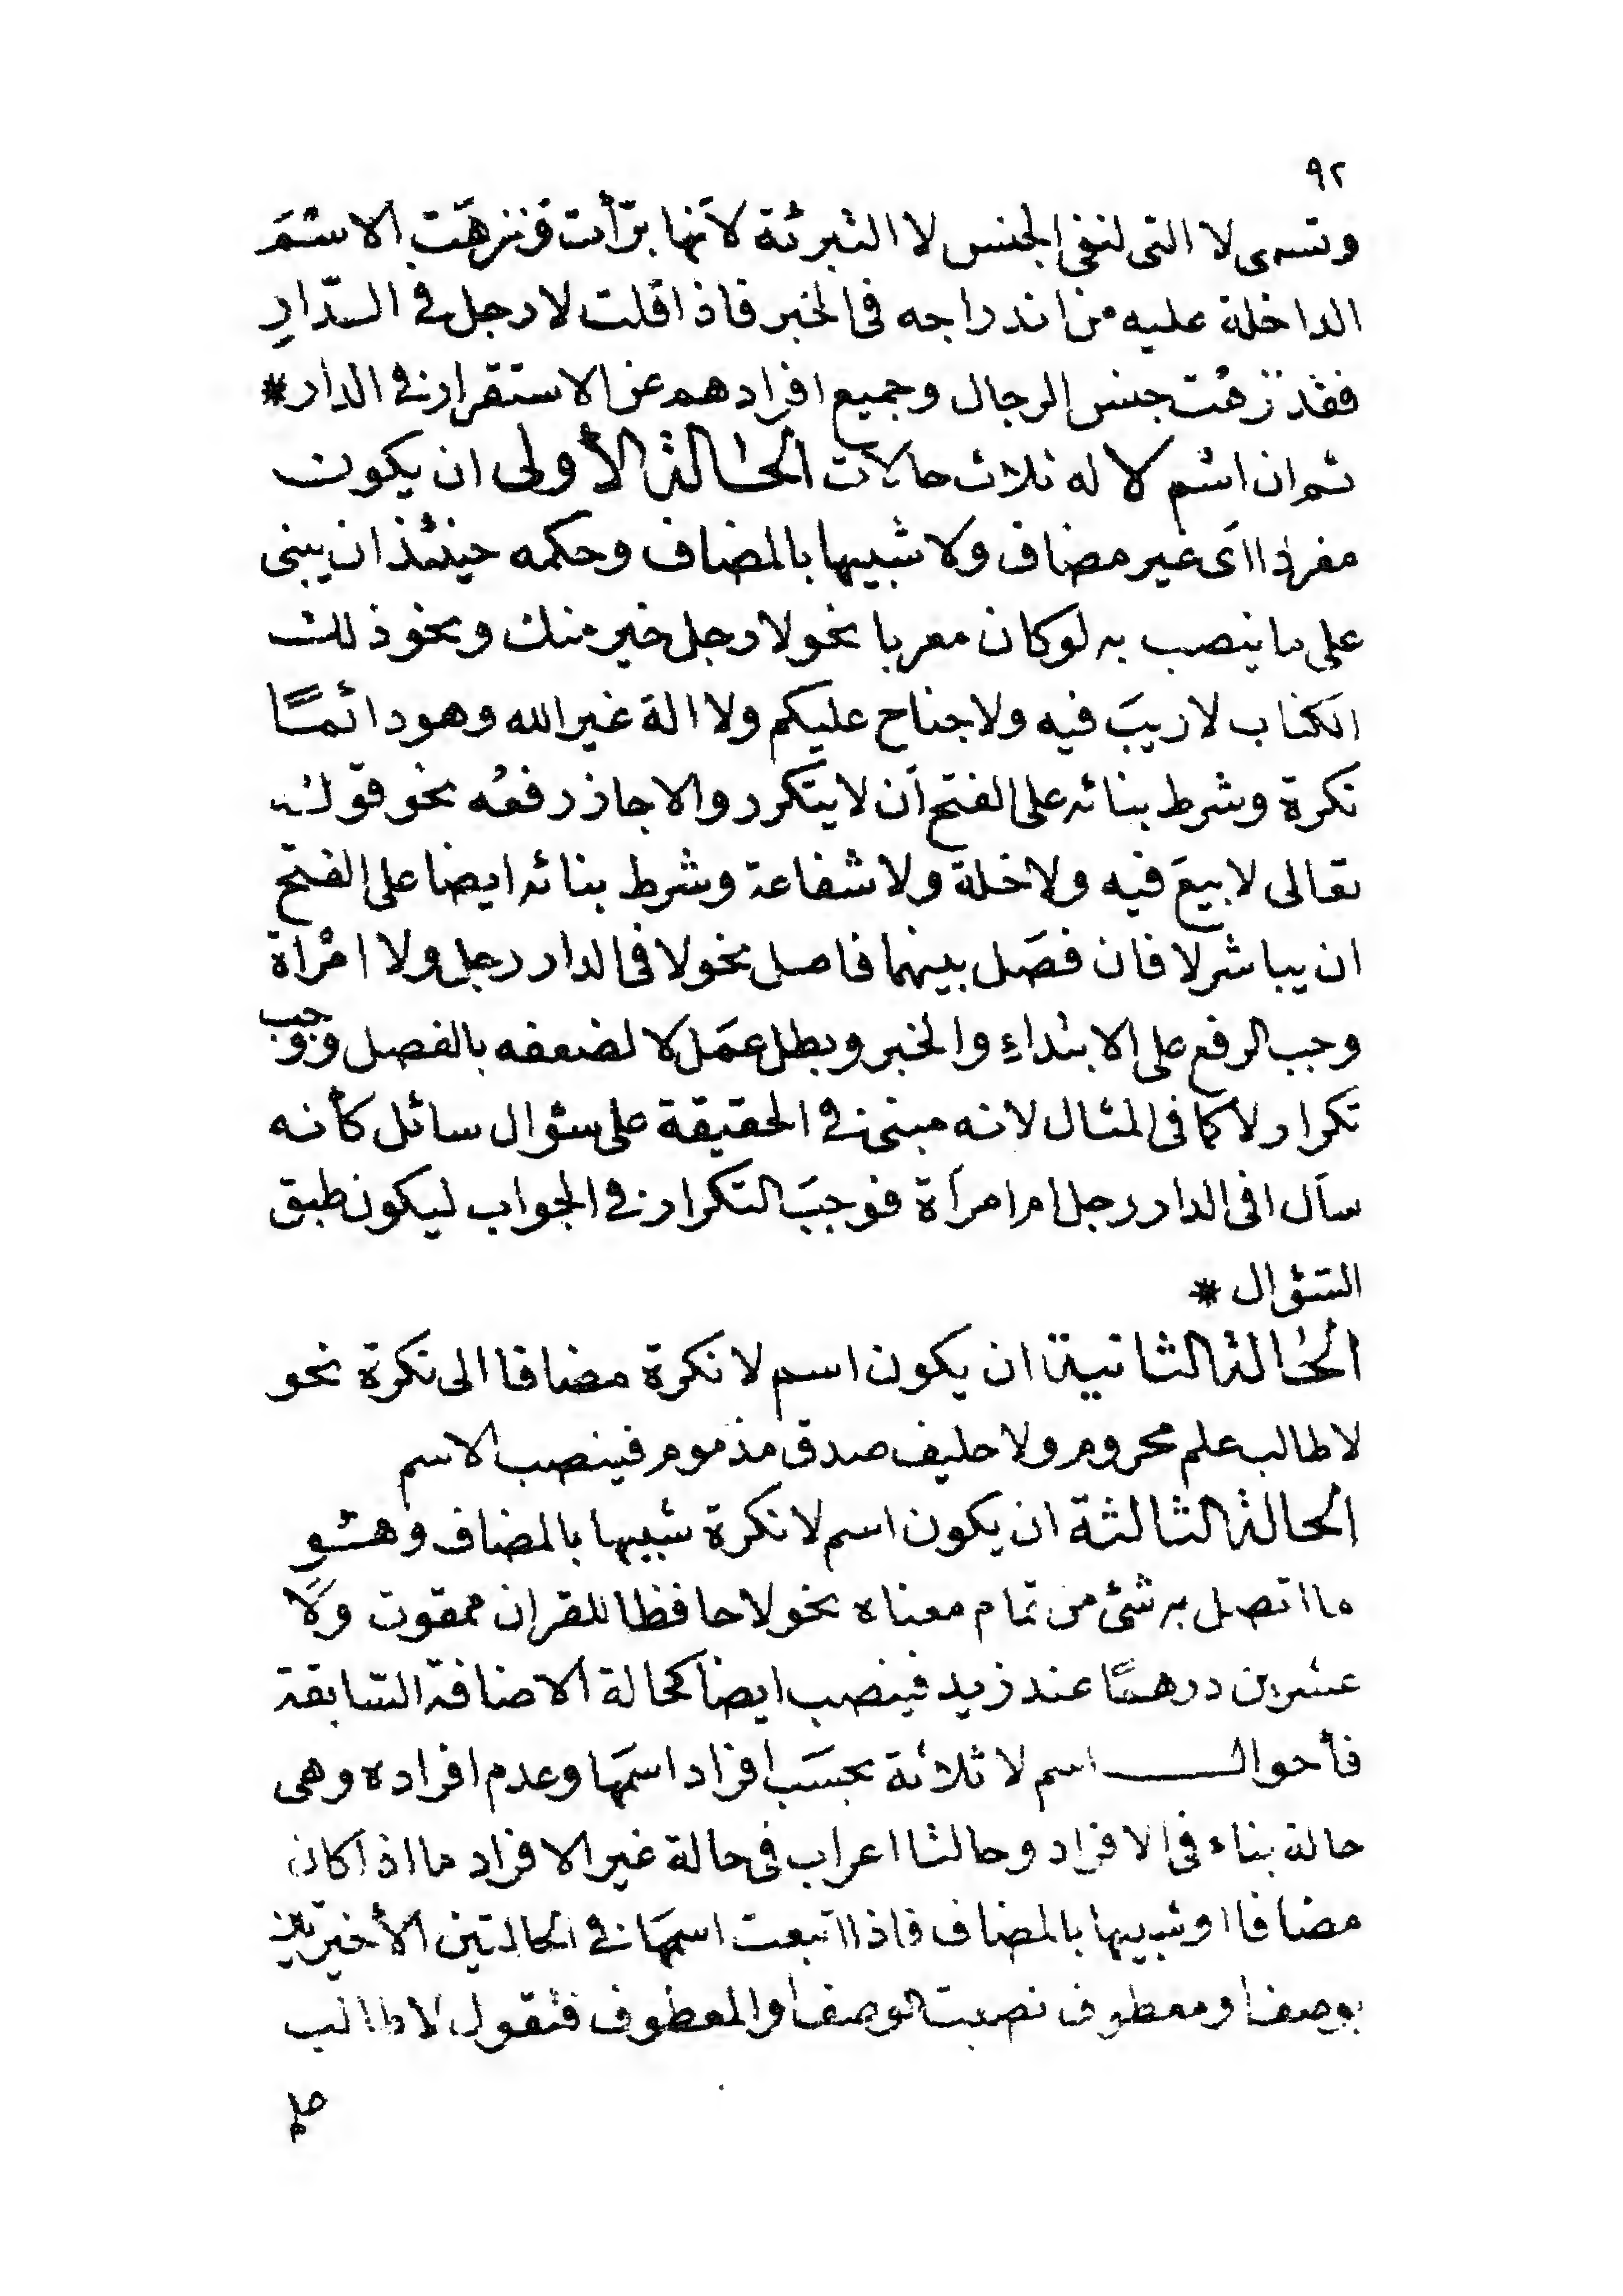 ٩٢
وتسمى لا التى لنفى الجنس لا التبرئة لأنها برّأت ونزهت الاسم
الداخلة عليه من اندراجه فى الخبر فاذا قلت لا رجل فى الدّارِ
فقد نزهت جنس الرجال وجميع افرادهم عن الاستقرار فى الدار *
ثم ان اسم لا له ثلاث حالات الحالة الأولى ان يكون
مفردا اى غير مضاف ولا شبيها بالمضاف وحكمه حينئذ ان يبنى
على ما ينصب به لو كان معربا نحو لا رجل خير منك ونحو ذلك
الكتاب لا ريبَ فيه ولا جناح عليكم ولا اله غير الله وهو دائمًا
نكرة وشرط بنائه على الفتح أن لا يتكرر والا جاز رفعُه نحو قوله
تعالى لا بيعَ فيه ولا خلة ولا شفاعة وشرط بنائه ايضا على الفتح
ان يباشر لا فان فصَل بينهما فاصل نحو لا فى الدار رجل ولا امْرأة
وجب الرفع على الابتداءِ والخبر وبطل عمَل لا لضعفه بالفصل ووجب
تكرار لا كما فى المثال لانه مبنى فى الحقيقة على سؤال سائل كأنه
سأل افى الدار رجل ام امرأة فوجبَ التكرار فى الجواب ليكون طبق
السّؤال *
الحالة الثانية ان يكون اسم لا نكرة مضافا الى نكرة نحو
لا طالب علم محروم ولا حليف صدق مذموم فينصب الاسم
الحالة الثالثة ان يكون اسم لا نكرة شبيها بالمضاف وهو
ما اتصل به شئ من تمام معناه نحو لا حافظا للقران ممقوت ولَا
عشرين درهمًا عند زيد فينصب ايضا كحالة الاضافة السّابقة
فأحوال اسم لا ثلاثة بحسَب افراد اسمَها وعدم افراده وهى
حالة بناء فى الافراد وحالتا اعراب فى حالة غير الافراد ما اذا كان
مضافا او شبيها بالمضاف فاذا اتبعت اسمهَا فى الحالتين الأخيرتين
بوصف او معطوف نصبت الوصف او المعطوف فتقول لا طالب
علم